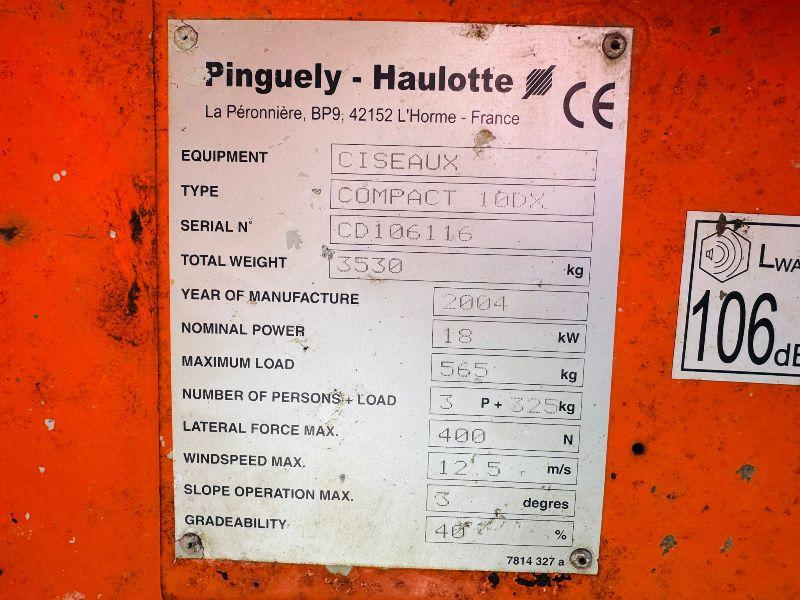 Pinguely - Haulotte
CE
La Péronnière, BP9, 42152 L'Horme - France
EQUIPMENT CISEAUX
TYPE COMPACT 10DX
SERIAL N° CD106116
TOTAL WEIGHT 3530 kg
YEAR OF MANUFACTURE 2004
NOMINAL POWER 18 kW
MAXIMUM LOAD 565 kg
NUMBER OF PERSONS + LOAD 3 P + 325 kg
LATERAL FORCE MAX. 400 N
WINDSPEED MAX. 12.5 m/s
SLOPE OPERATION MAX. 3 degres
GRADEABILITY 40 %
7814 327 a
LWA
106 dB